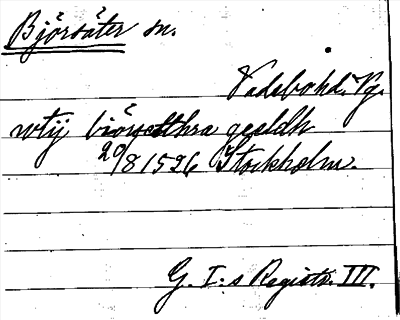 Björsäter sn.
Vadsbo hd. Vg.
wtij biörsetthra geeldh
20/8 1526 Stockholm.
G. I:s Registr. III.